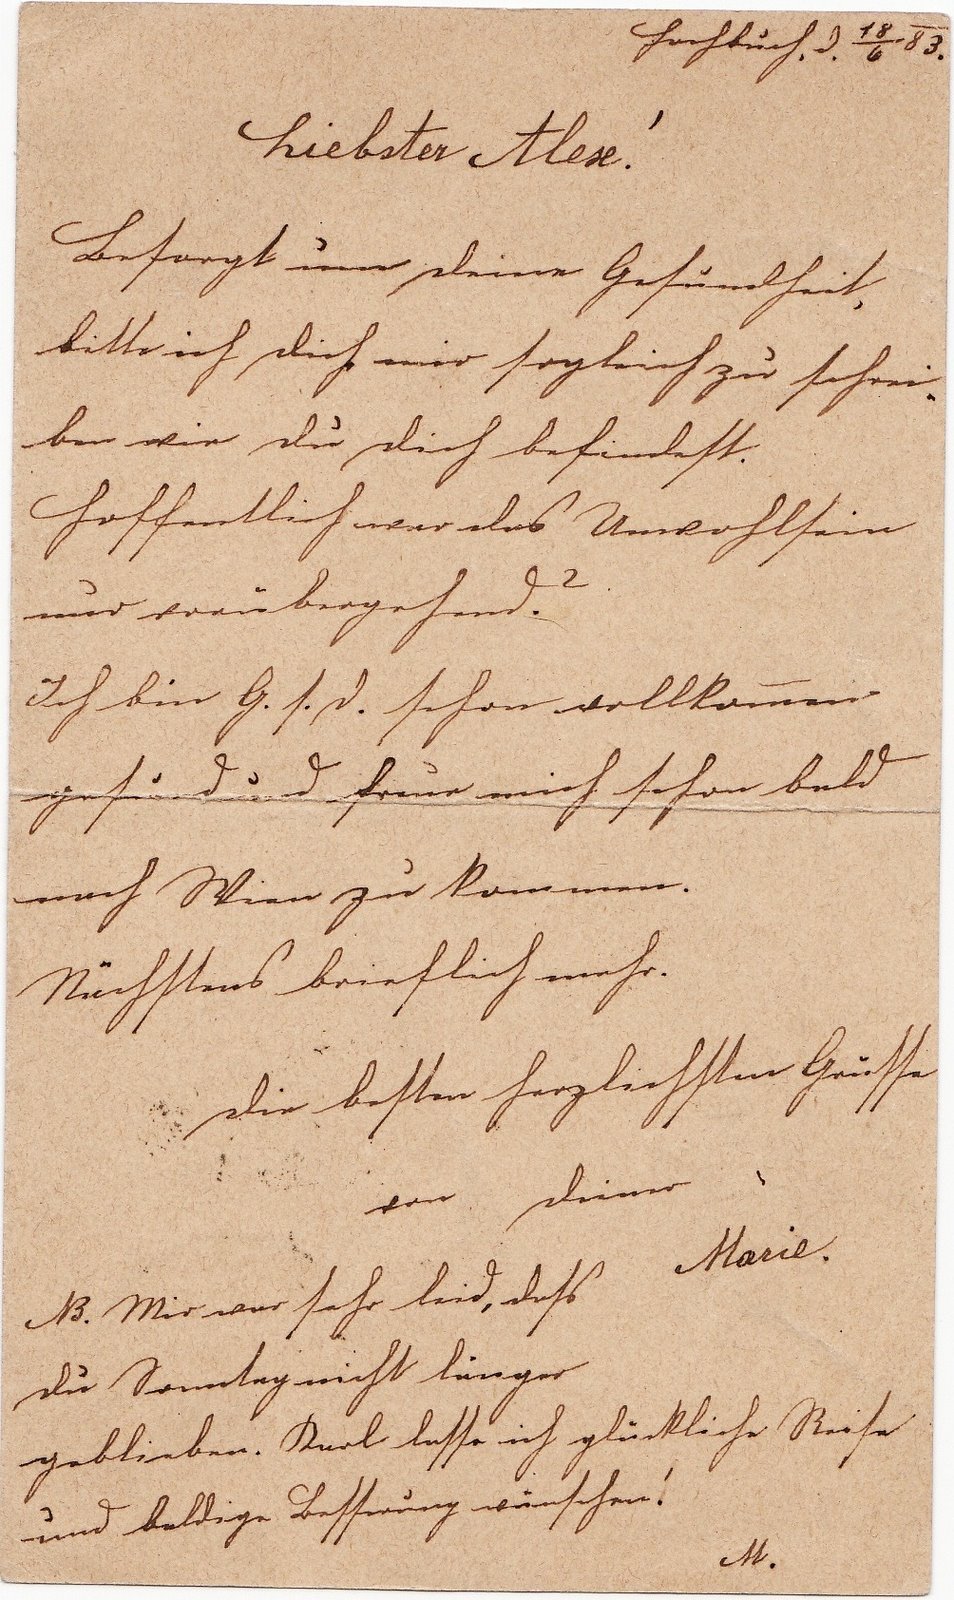 Hochbuch, d. 18/6 83.
Liebster Alex!
Besorgt um deine Gesundheit,
bitte ich dich mir sogleich zu schrei-
ben wie du dich befindest.
Hoffentlich war das Unwohlsein
nur vorübergehend.?
Ich bin G. s. d. schon vollkom̅en
gesund und freue mich schon bald
nach Wien zu kommen.
Nächstens brieflich mehr.
Die besten herzlichsten Grüsse
von deiner
Marie.
NB. Mir war sehr leid, dass
du Sonntag nicht länger
geblieben. Karl lasse ich glückliche Reise
und baldige Besserung wünschen!
M.